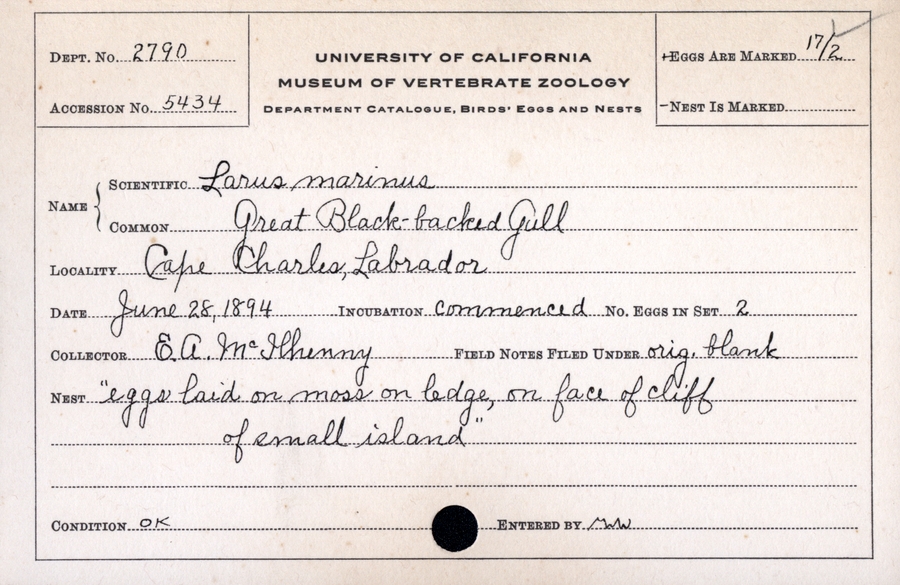 Dept. No. 2790
Accession No. 5434
UNIVERSITY OF CALIFORNIA
MUSEUM OF VERTEBRATE ZOOLOGY
Department Catalogue, Birds' Eggs and Nests
+Eggs Are Marked 17/2
-Nest Is Marked
Name { Scientific Larus marinus
Common Great Black-backed Gull
Locality Cape Charles, Labrador
Date June 28, 1894 Incubation commenced No. Eggs in Set 2
Collector E.A. McIlhenny Field Notes Filed Under orig. blank
Nest "eggs laid on moss on ledge, on face of cliff
of small island"
Condition OK Entered by